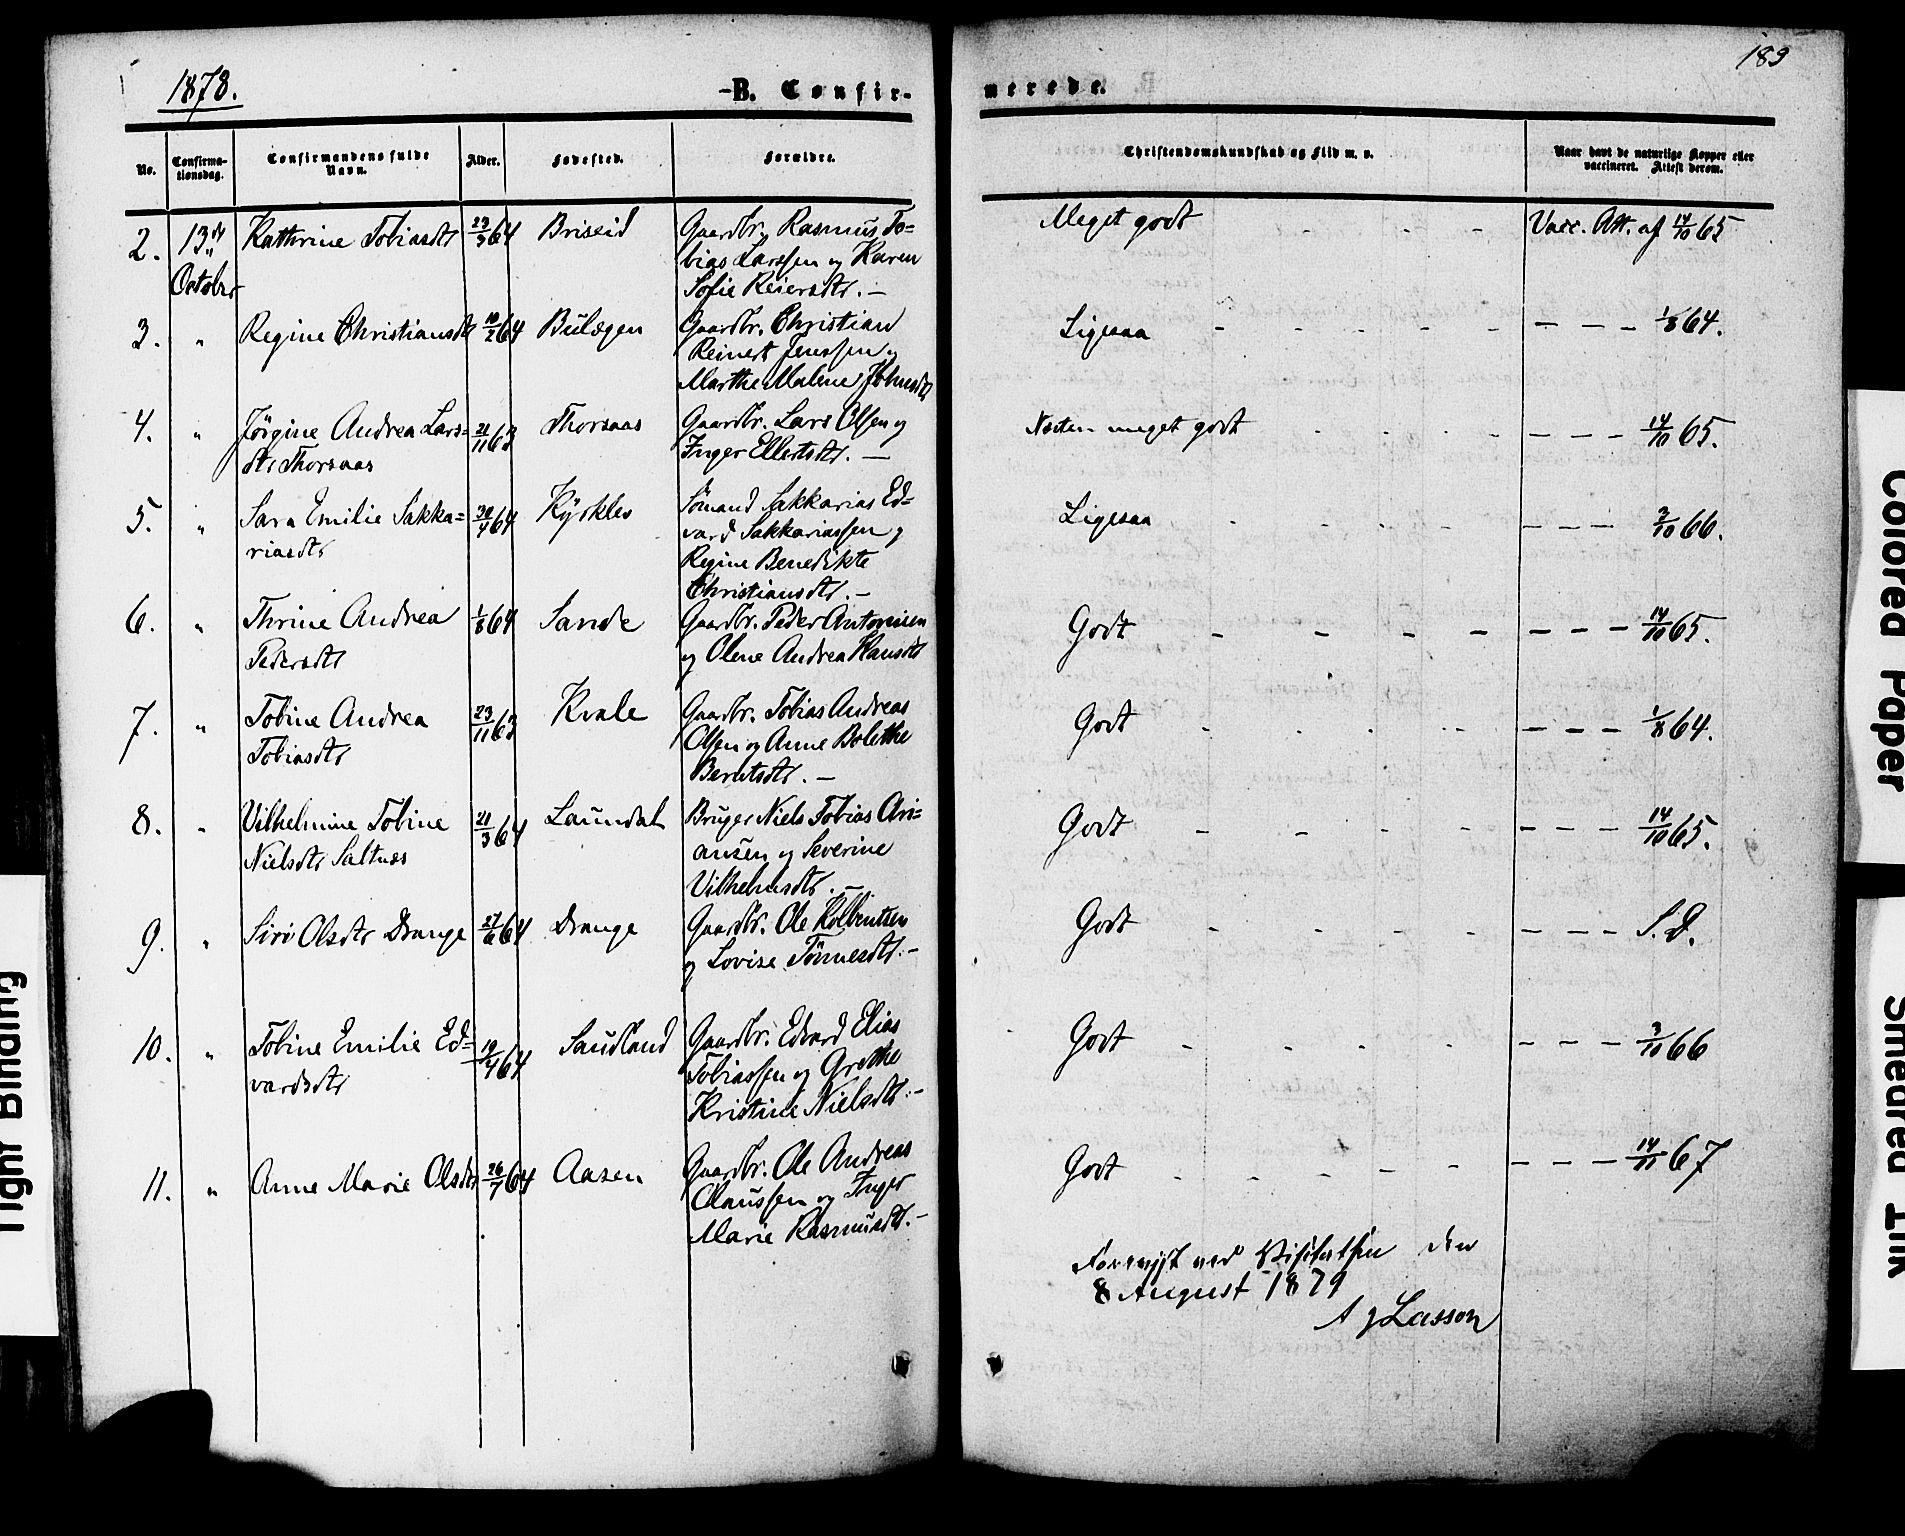 189
1878.
B. Confir-
nerede.
No.
Confirma-
tionsdag.
Confirmandens fulde
Navn.
Alder.
Fødested.
Forældre.
Christendomskundskab og Flid m. v.
Naar havt de naturlige Kopper eller
vaccineret. Attest derom.
2. 13de October Kathrine Tobiasdtr 23/3 64 Briseid Gaardbr. Rasmus To=
bias Larssen og Karen
Sofie Reiersdtr. — Meget godt - - - Vacc. Att. af 14/10 65
3. " Regine Christiansdtr 10/2 64 Bulægen Gaardbr. Christian
Reinert Jenssen og
Marthe Malene Johnsdtr Ligesaa - - - 1/8 64.
4. " Jørgine Andrea Lars=
dtr Thorsaas 21/11 63 Thorsaas Gaardbr. Lars Olsen og
Inger Ellertsdtr. — Næsten meget godt - - - 14/10 65.
5. " Sara Emilie Sakka=
riasdtr 30/4 64 Gaardbr. Sømand Sakkarias Ed=
vard Sakkariassen og
Regine Benedikte
Christiansdtr. — Ligesaa - - - 3/10 66.
6. " Thrine Andrea
Pedersdtr 1/8 64 Sande Gaardbr. Peder Antonisen
og Olene Andrea Hansdtr Godt - - - 14/10 65.
7. " Tobine Andrea
Tobiasdtr 23/11 63 Kvale Gaardbr. Tobias Andreas
Olsen og Anne Bolethe
Berntsdtr. — Godt - - - 1/8 64.
8. " Vilhelmine Tobine
Nielsdtr Saltnæs 21/3 64 Laundal Bruger Niels Tobias Ari=
ansen og Severine
Vilhelmsdtr. — Godt - - - 14/10 65.
9. " Siri Olsdtr Drange 27/6 64 Drange Gaardbr. Ole Kolbentsen
og Lovise Tönnesdtr. — Godt - - - S. D.
10. " Tobine Emilie Ed=
vardsdtr 19/4 64 Saudland Gaardbr. Edvard Elias
Tobiassen og Grethe
Kristine Nielsdtr. — Godt - - - 3/10 66
11. " Anne Marie Olsdtr 26/7 64 Aasen Gaardbr. Ole Andreas
Claussen og Inger
Marie Rasmusdtr. — Godt - - - 14/11 67
Forevist ved Visitatsen den
8 August 1879
A J Lasson
Tight Binding
Colored Paper
Smeared Ink